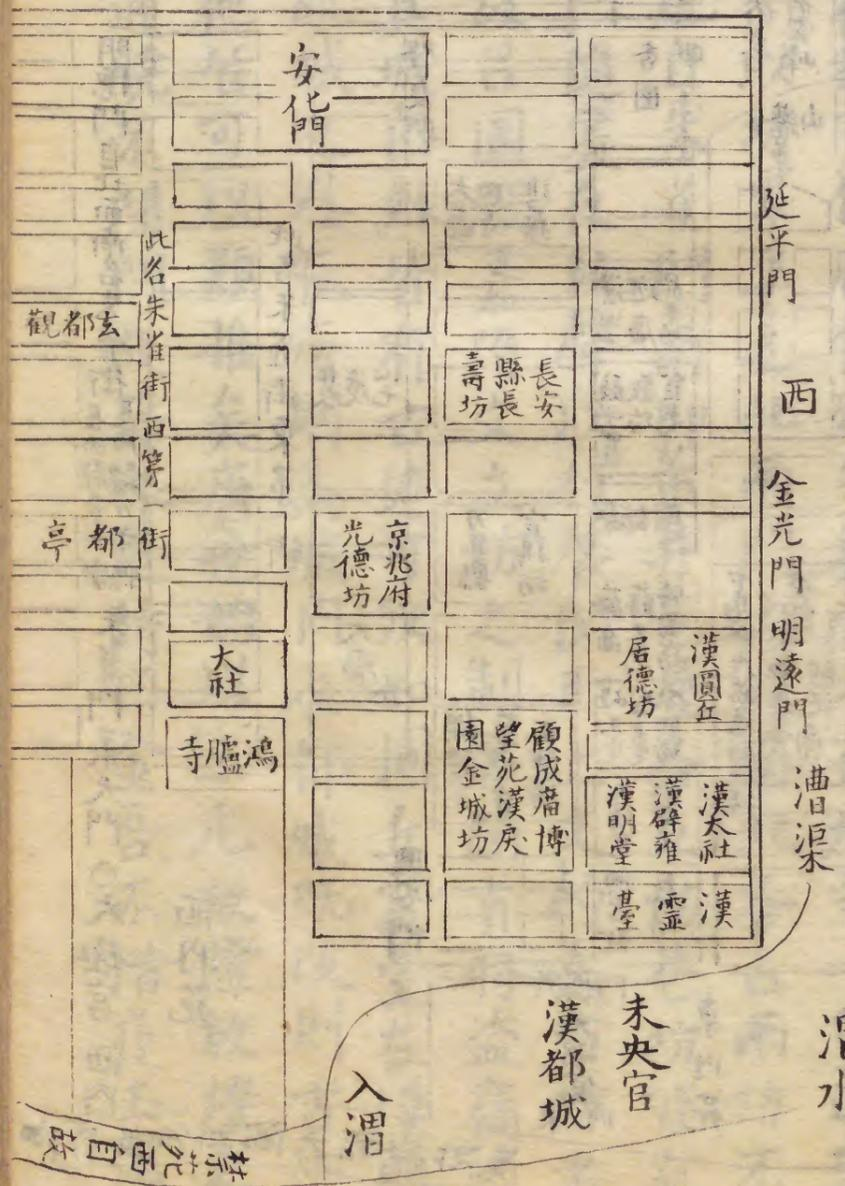 安化門
延平門
西
金光門
明遠門
漕渠
此名朱雀街西第一街
玄都觀
長安
縣長
壽坊
都亭
京兆府
光德坊
大社
漢圓丘
居德坊
鴻臚寺
顧成廟博
望苑漢戾
園金城坊
漢太社
漢辟雍
漢明堂
漢靈臺
未央官
漢都城
入渭
禁苑西自故